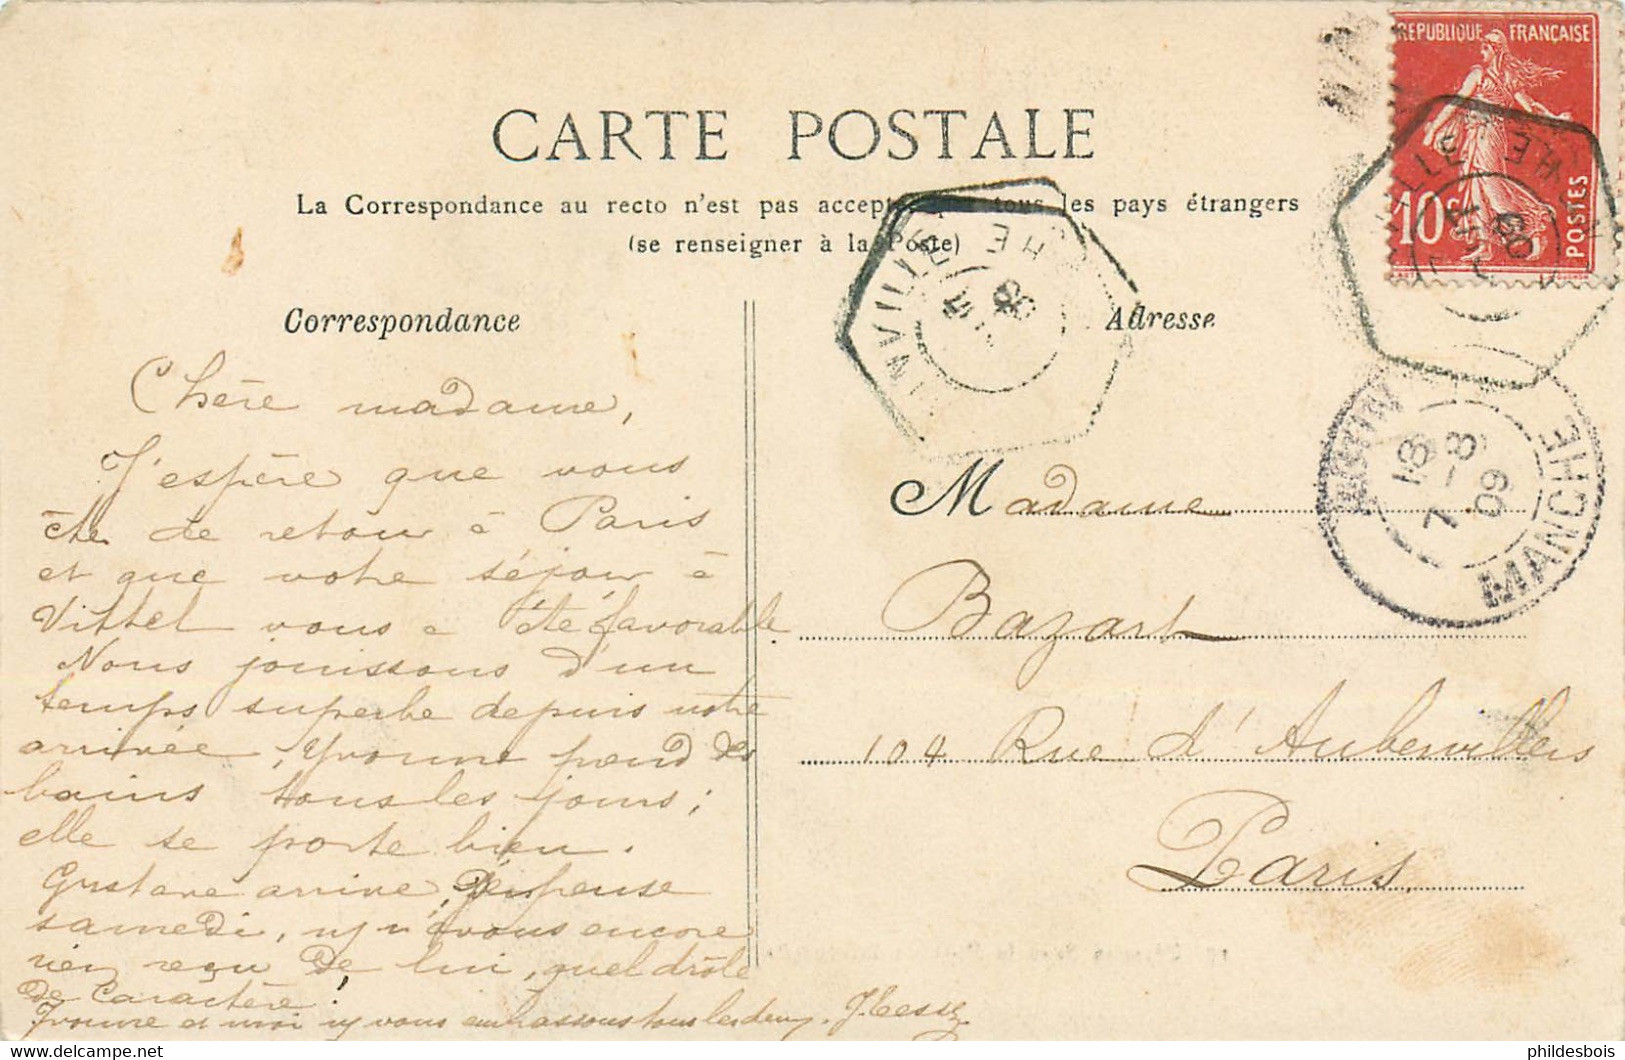 REPUBLIQUE FRANÇAISE
10c POSTES
CARTE POSTALE
La Correspondance au recto n'est pas acceptée par tous les pays étrangers
(se renseigner à la Poste)
Correspondance
Adresse
INVILLE
CHE
09
18
7 - 8
09
MANCHE
Chère madame,
J'espère que vous
ête de retour à Paris
et que votre séjour à
Vittel vous a été favorable.
Nous jouissons d'un
temps superbe depuis notre
arrivée, Yvonne prend des
bains tous les jours;
elle se porte bien.
Gustave arrive, je pense
samedi, nous encore
rien reçu de lui, quel drôle
de caractère!
Yvonne et moi vous embrassons tous les deux.
Madame
Bazart
104 Rue d'Aubervillers
Paris
phildesbois